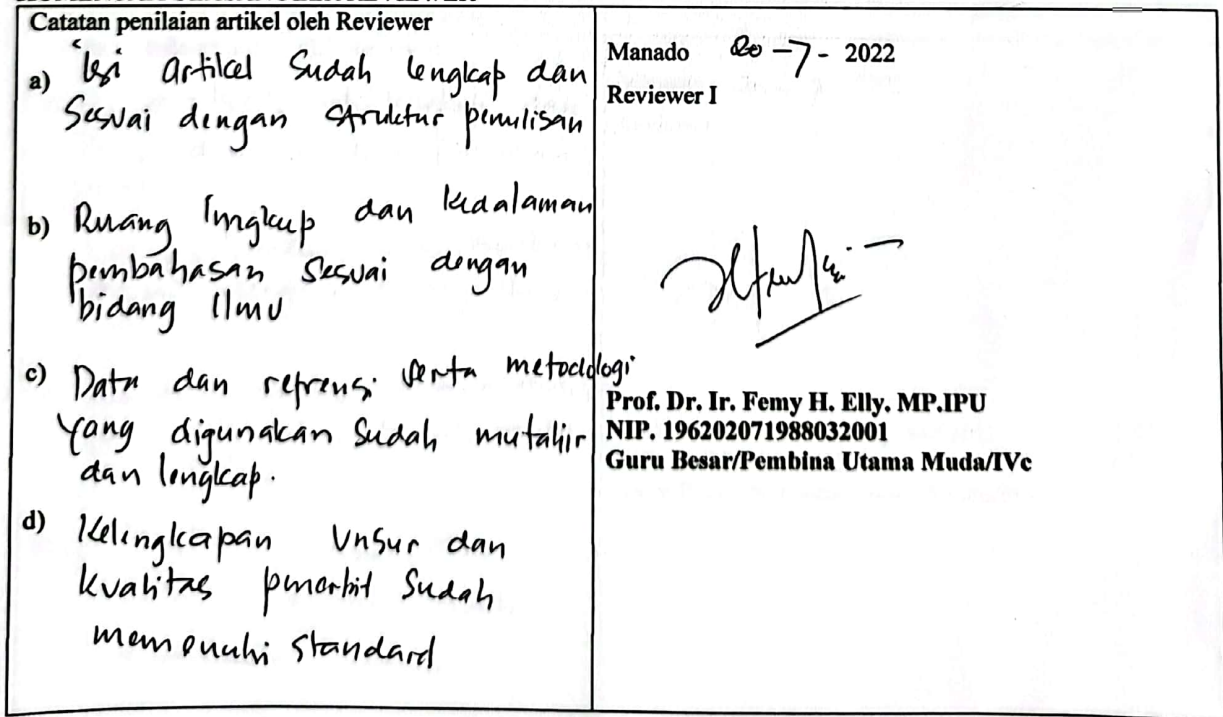 Catatan penilaian artikel oleh Reviewer
a) Isi artikel Sudah lengkap dan
Sesuai dengan struktur penulisan
b) Ruang lingkup dan kedalaman
pembahasan Sesuai dengan
bidang Ilmu
c) Data dan refrensi serta metodologi
Yang digunakan Sudah mutahir
dan lengkap.
d) Kelengkapan Unsur dan
kualitas penerbit Sudah
memenuhi Standard
Manado 20-7-2022
Reviewer I
Prof. Dr. Ir. Femy H. Elly. MP.IPU
NIP. 196202071988032001
Guru Besar/Pembina Utama Muda/IVc